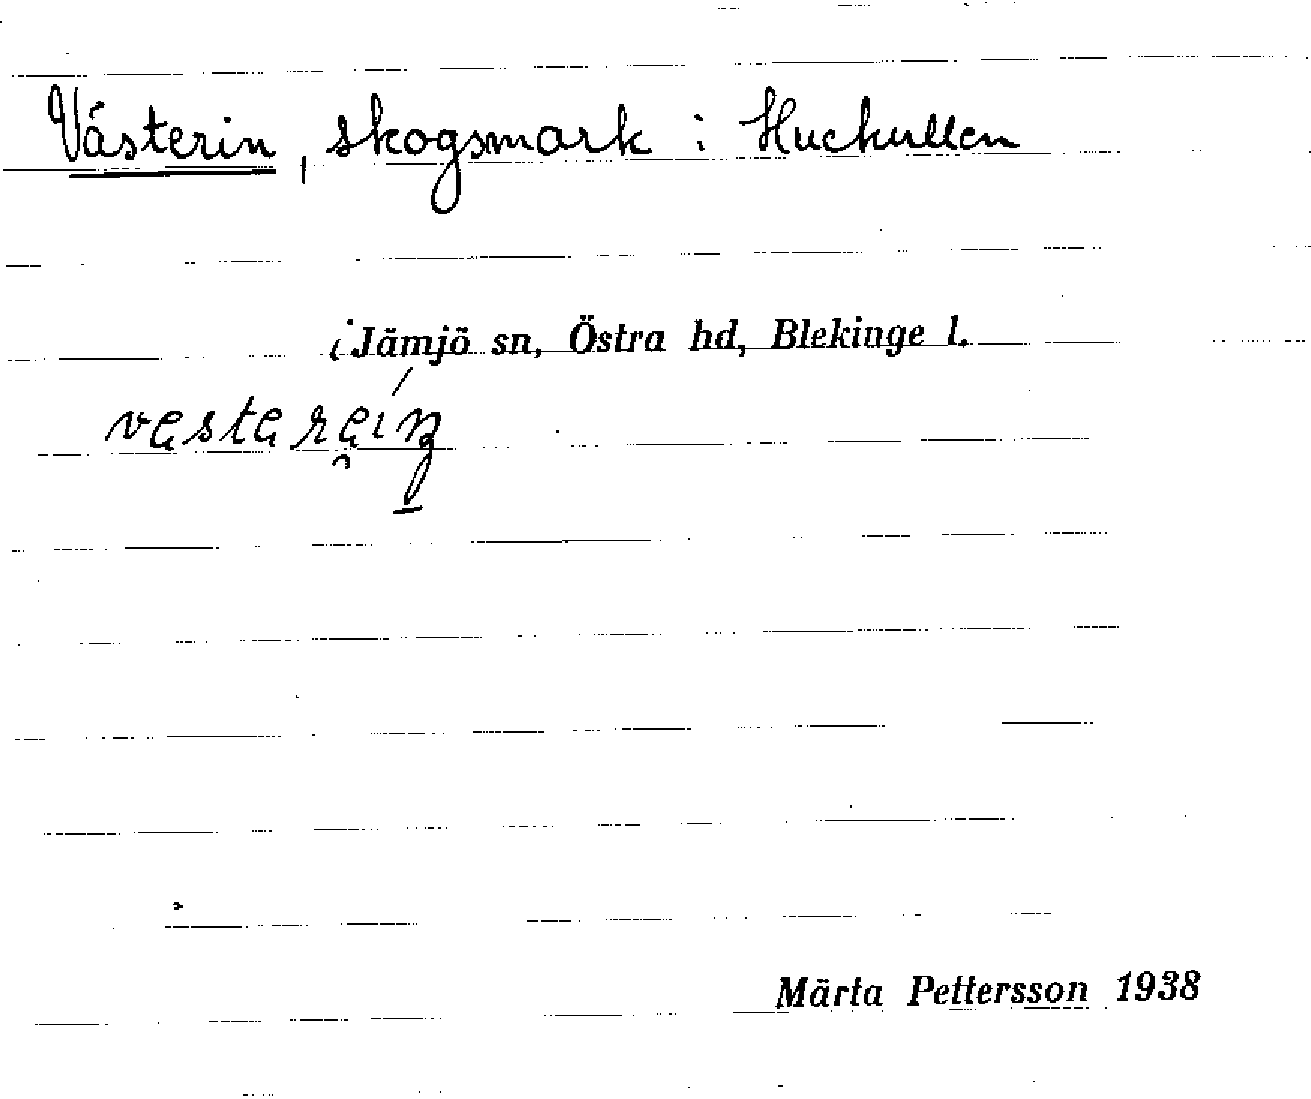 Västerin, skogsmark i Huckullen
i Jämjö sn, Östra hd, Blekinge l.
Märta Pettersson 1938